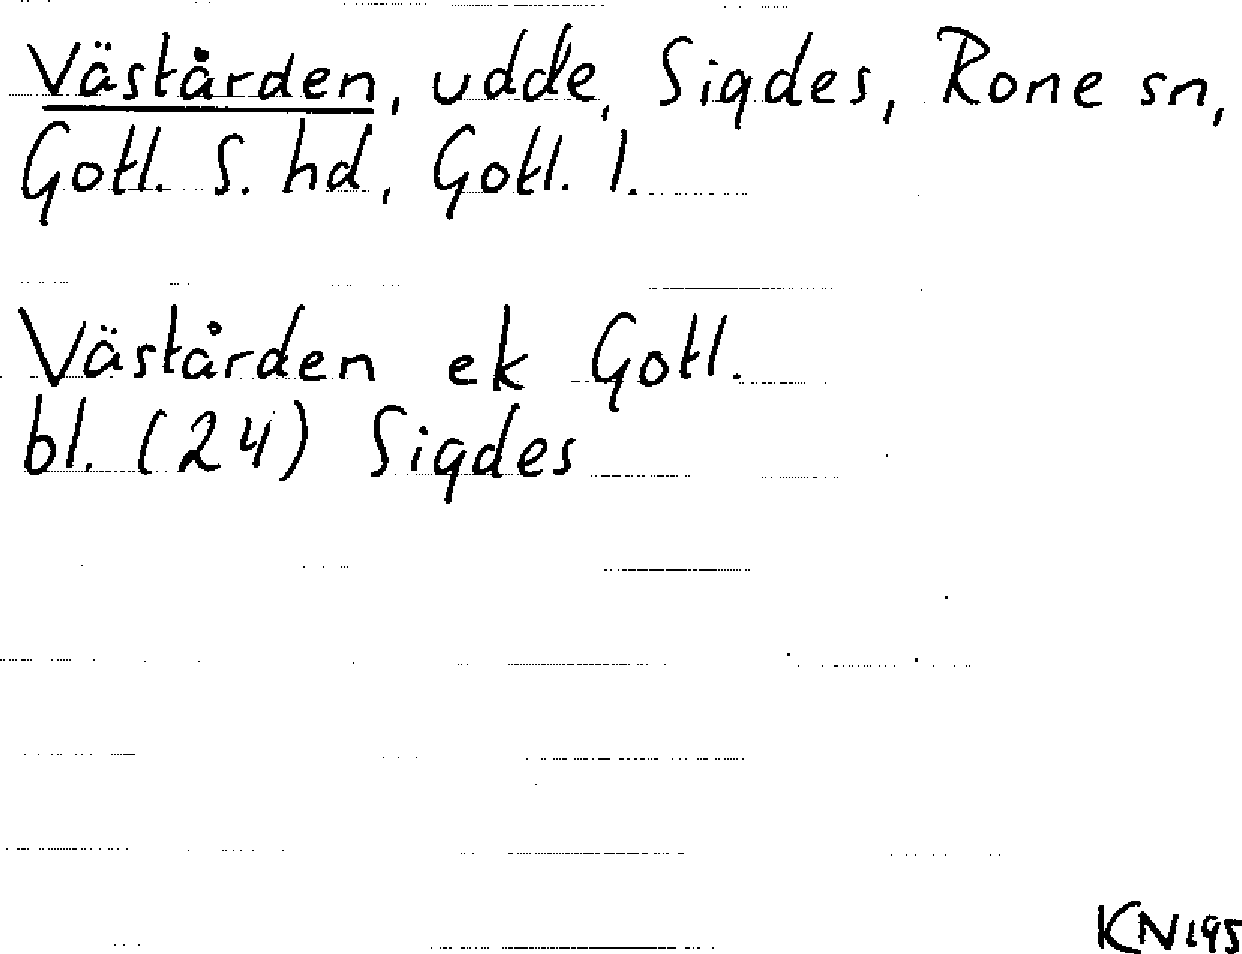 Västården, udde, Sigdes, Rone sn,
Gotl. S. hd, Gotl. l.
Västården ek Gotl.
bl. (24) Sigdes